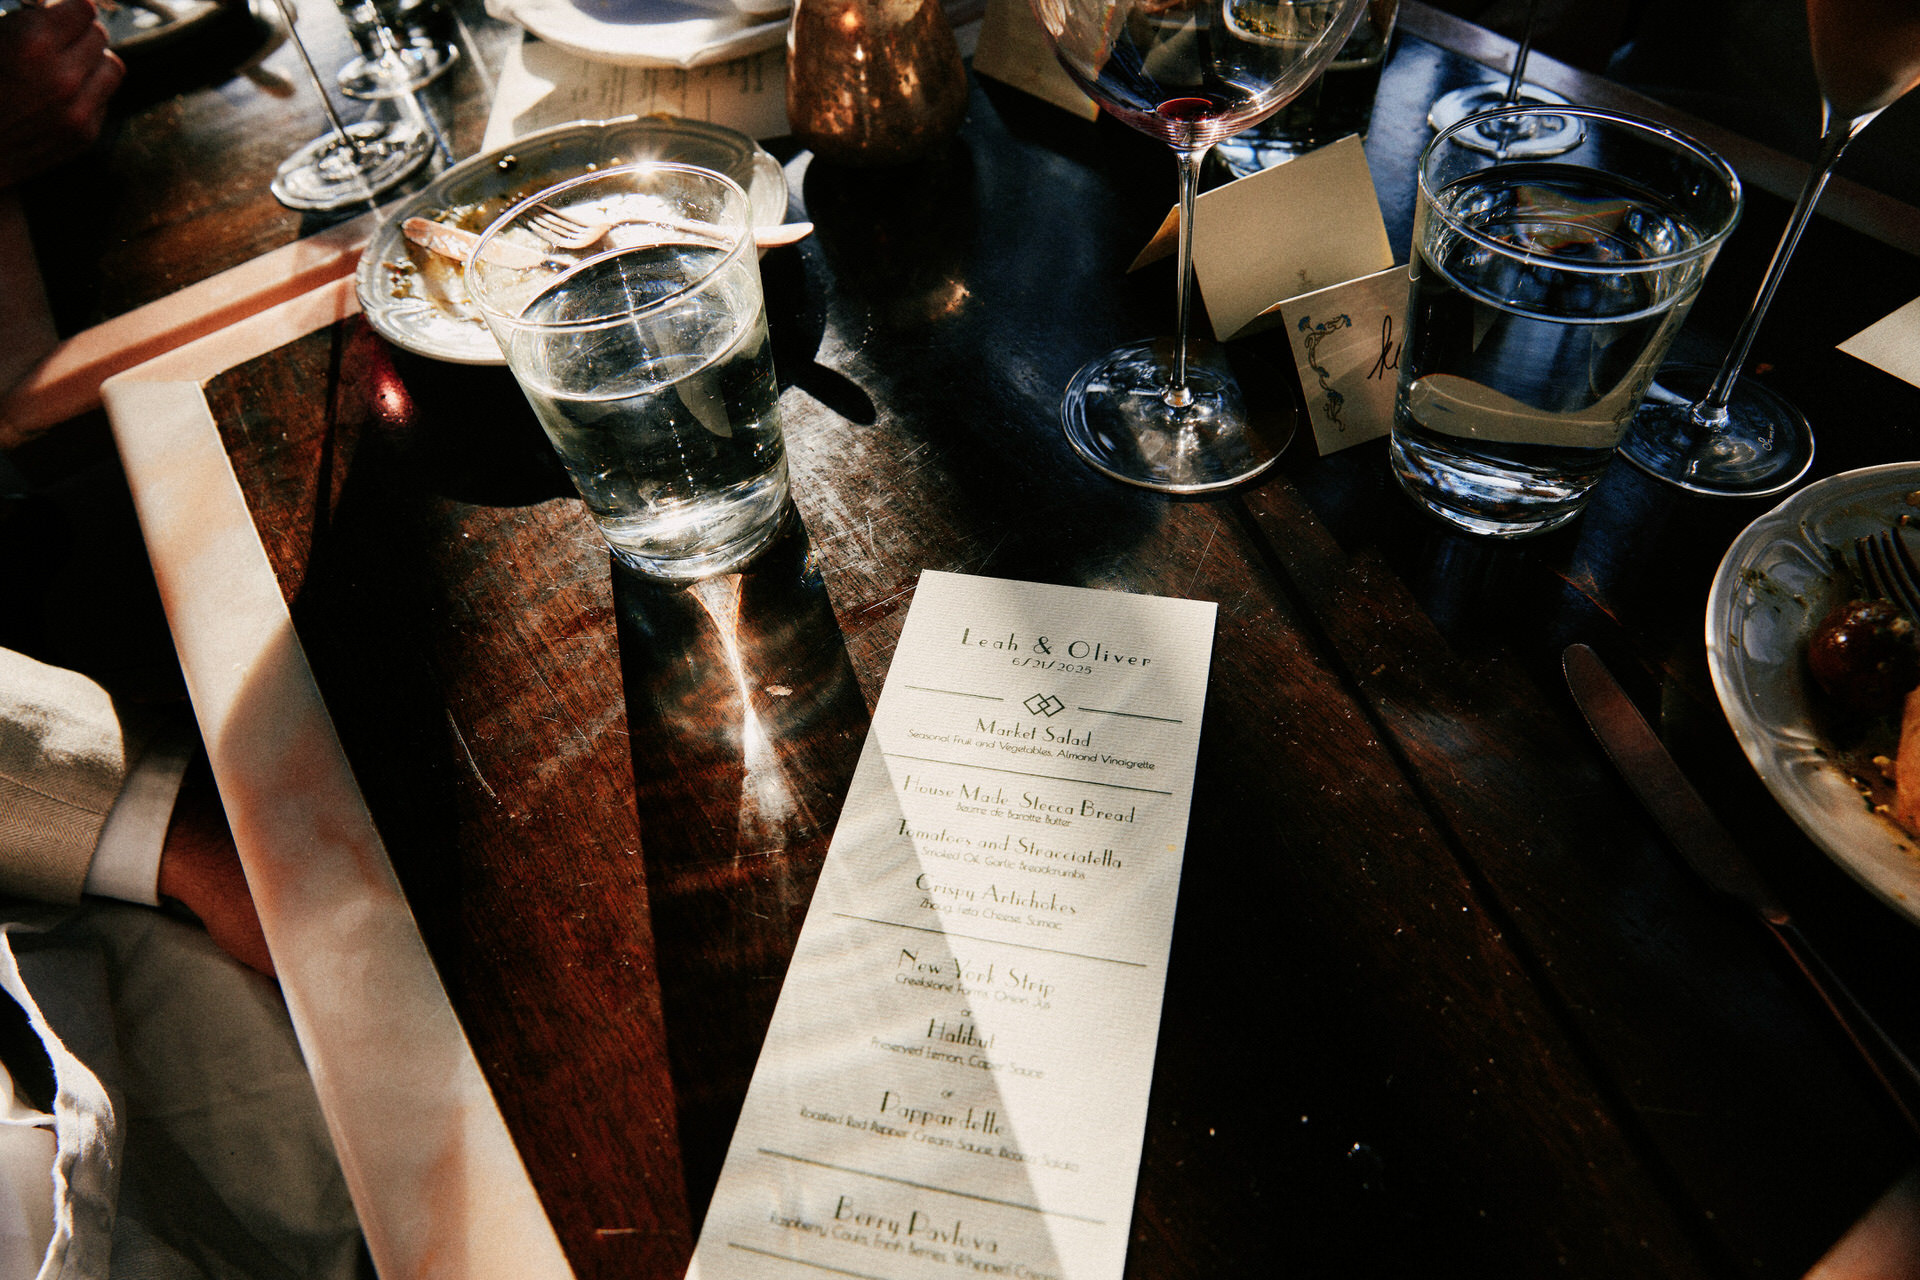 Leah & Oliver
6/21/2025
Market Salad
Seasonal Fruit and Vegetables, Almond Vinaigrette
House Made Stecca Bread
Beurre de Baratte Butter
Tomatoes and Stracciatella
Smoked Oil, Garlic Breadcrumbs
Crispy Artichokes
Zhoug, Feta Cheese, Sumac
New York Strip
Creekstone Farms, Onion Jus
or
Halibut
Preserved Lemon, Caper Sauce
or
Pappardelle
Roasted Red Pepper Cream Sauce, Ricotta Salata
Berry Pavlova
Raspberry Coulis, Fresh Berries, Whipped Cream